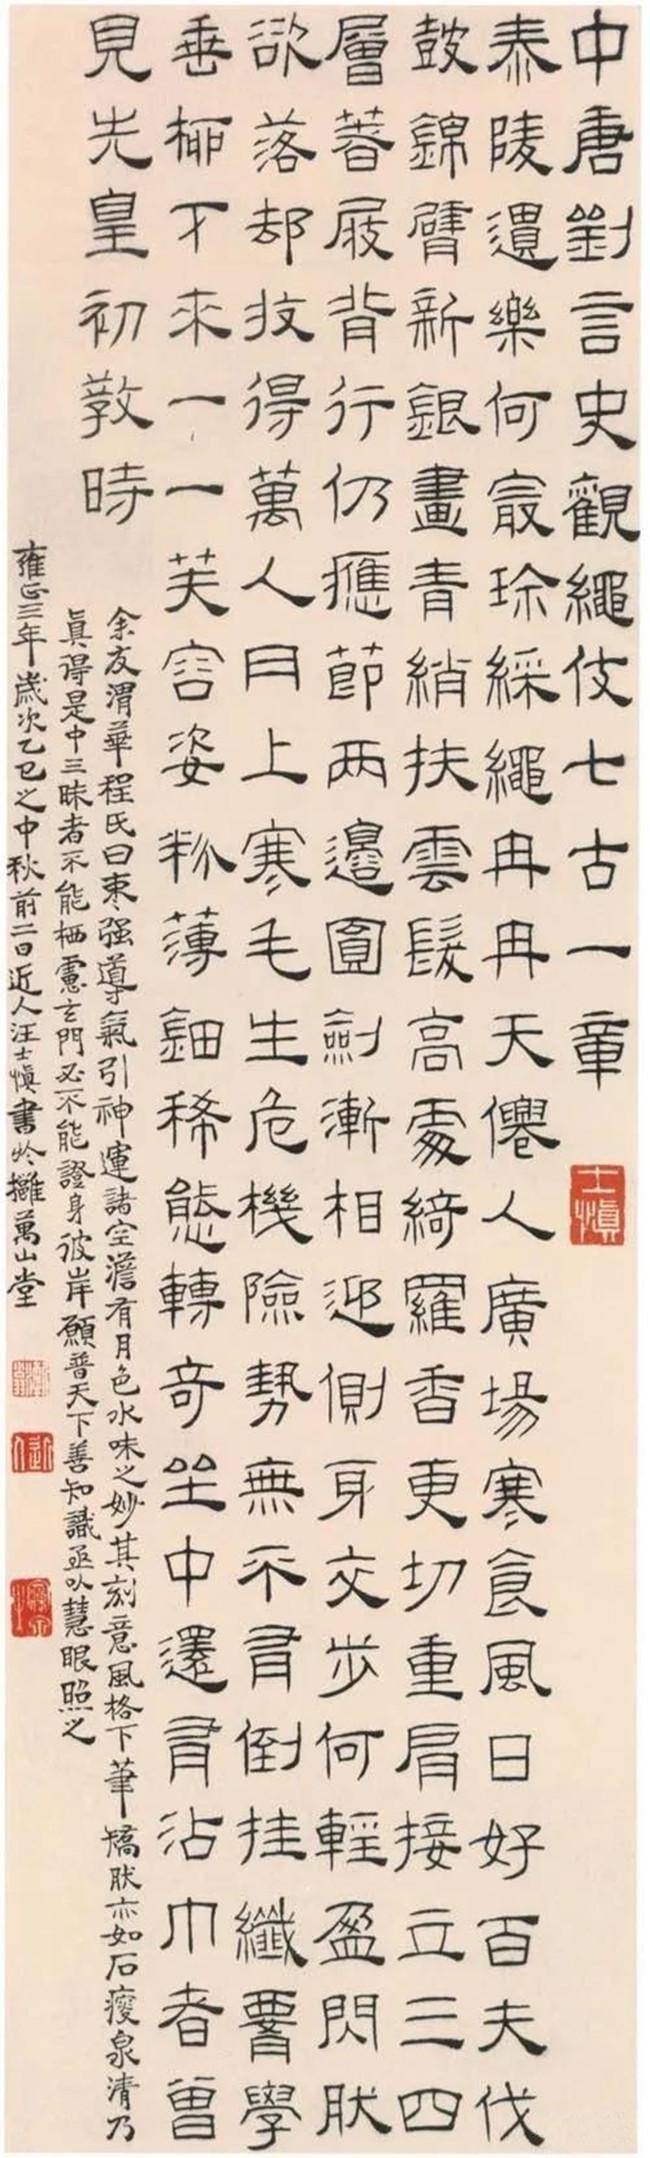 中唐劉言史觀繩伎七古一章
士慎
泰陵遺樂何最珍綵繩冉冉天僊人廣場寒食風日好百夫伐
鼓錦臂新銀畫青綃扶雲髮高處綺羅香更切重肩接立三四
層著屐背行仍應節兩邊圓劍漸相迎側身交步何輕盈閃肰
欲落却收得萬人肉上寒毛生危機險勢無不有倒挂纖腰學
垂柳下來一一芙容姿粉薄鈿稀態轉奇坐中還有沾巾者曾
見先皇初教時
余友渭華程氏曰棗強導氣引神運諸空澹有月色水味之妙其刻意風格下筆矯肰亦如石瘦泉清乃
真得是中三昧者不能栖慮玄門必不能證身彼岸願普天下善知識亟以慧眼照之
雍正三年歲次乙巳之中秋前二日近人汪士慎書於攤萬山堂
近人